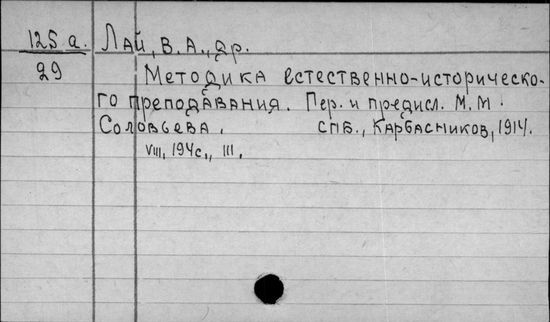 125 а. Лай, В. А., др.
29
Методика естественно-историческо-
го преподавания. Пер. и предисл. М. М.
Соловьева. СПБ., Карбасников, 1914.
VIII, 194 с., III.